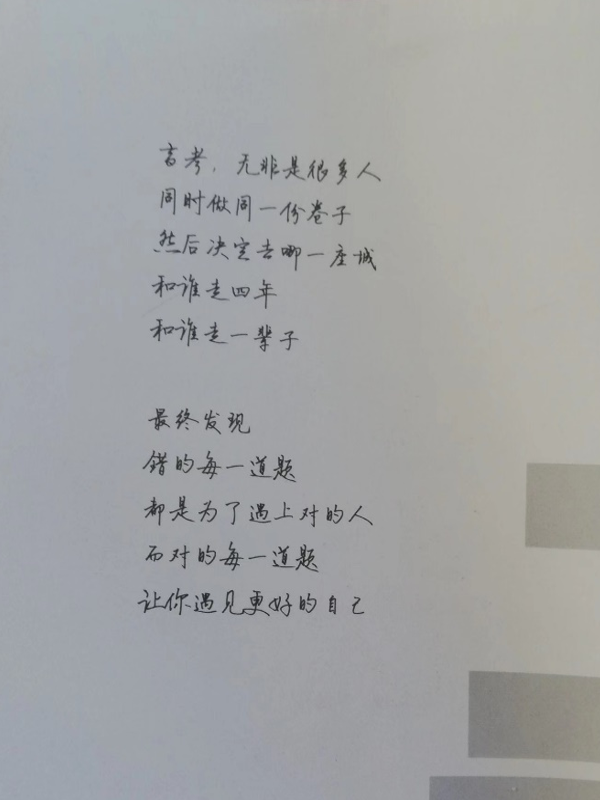 高考，无非是很多人
同时做同一份卷子
然后决定去哪一座城
和谁走四年
和谁走一辈子
最终发现
错的每一道题
都是为了遇上对的人
而对的每一道题
让你遇见更好的自己